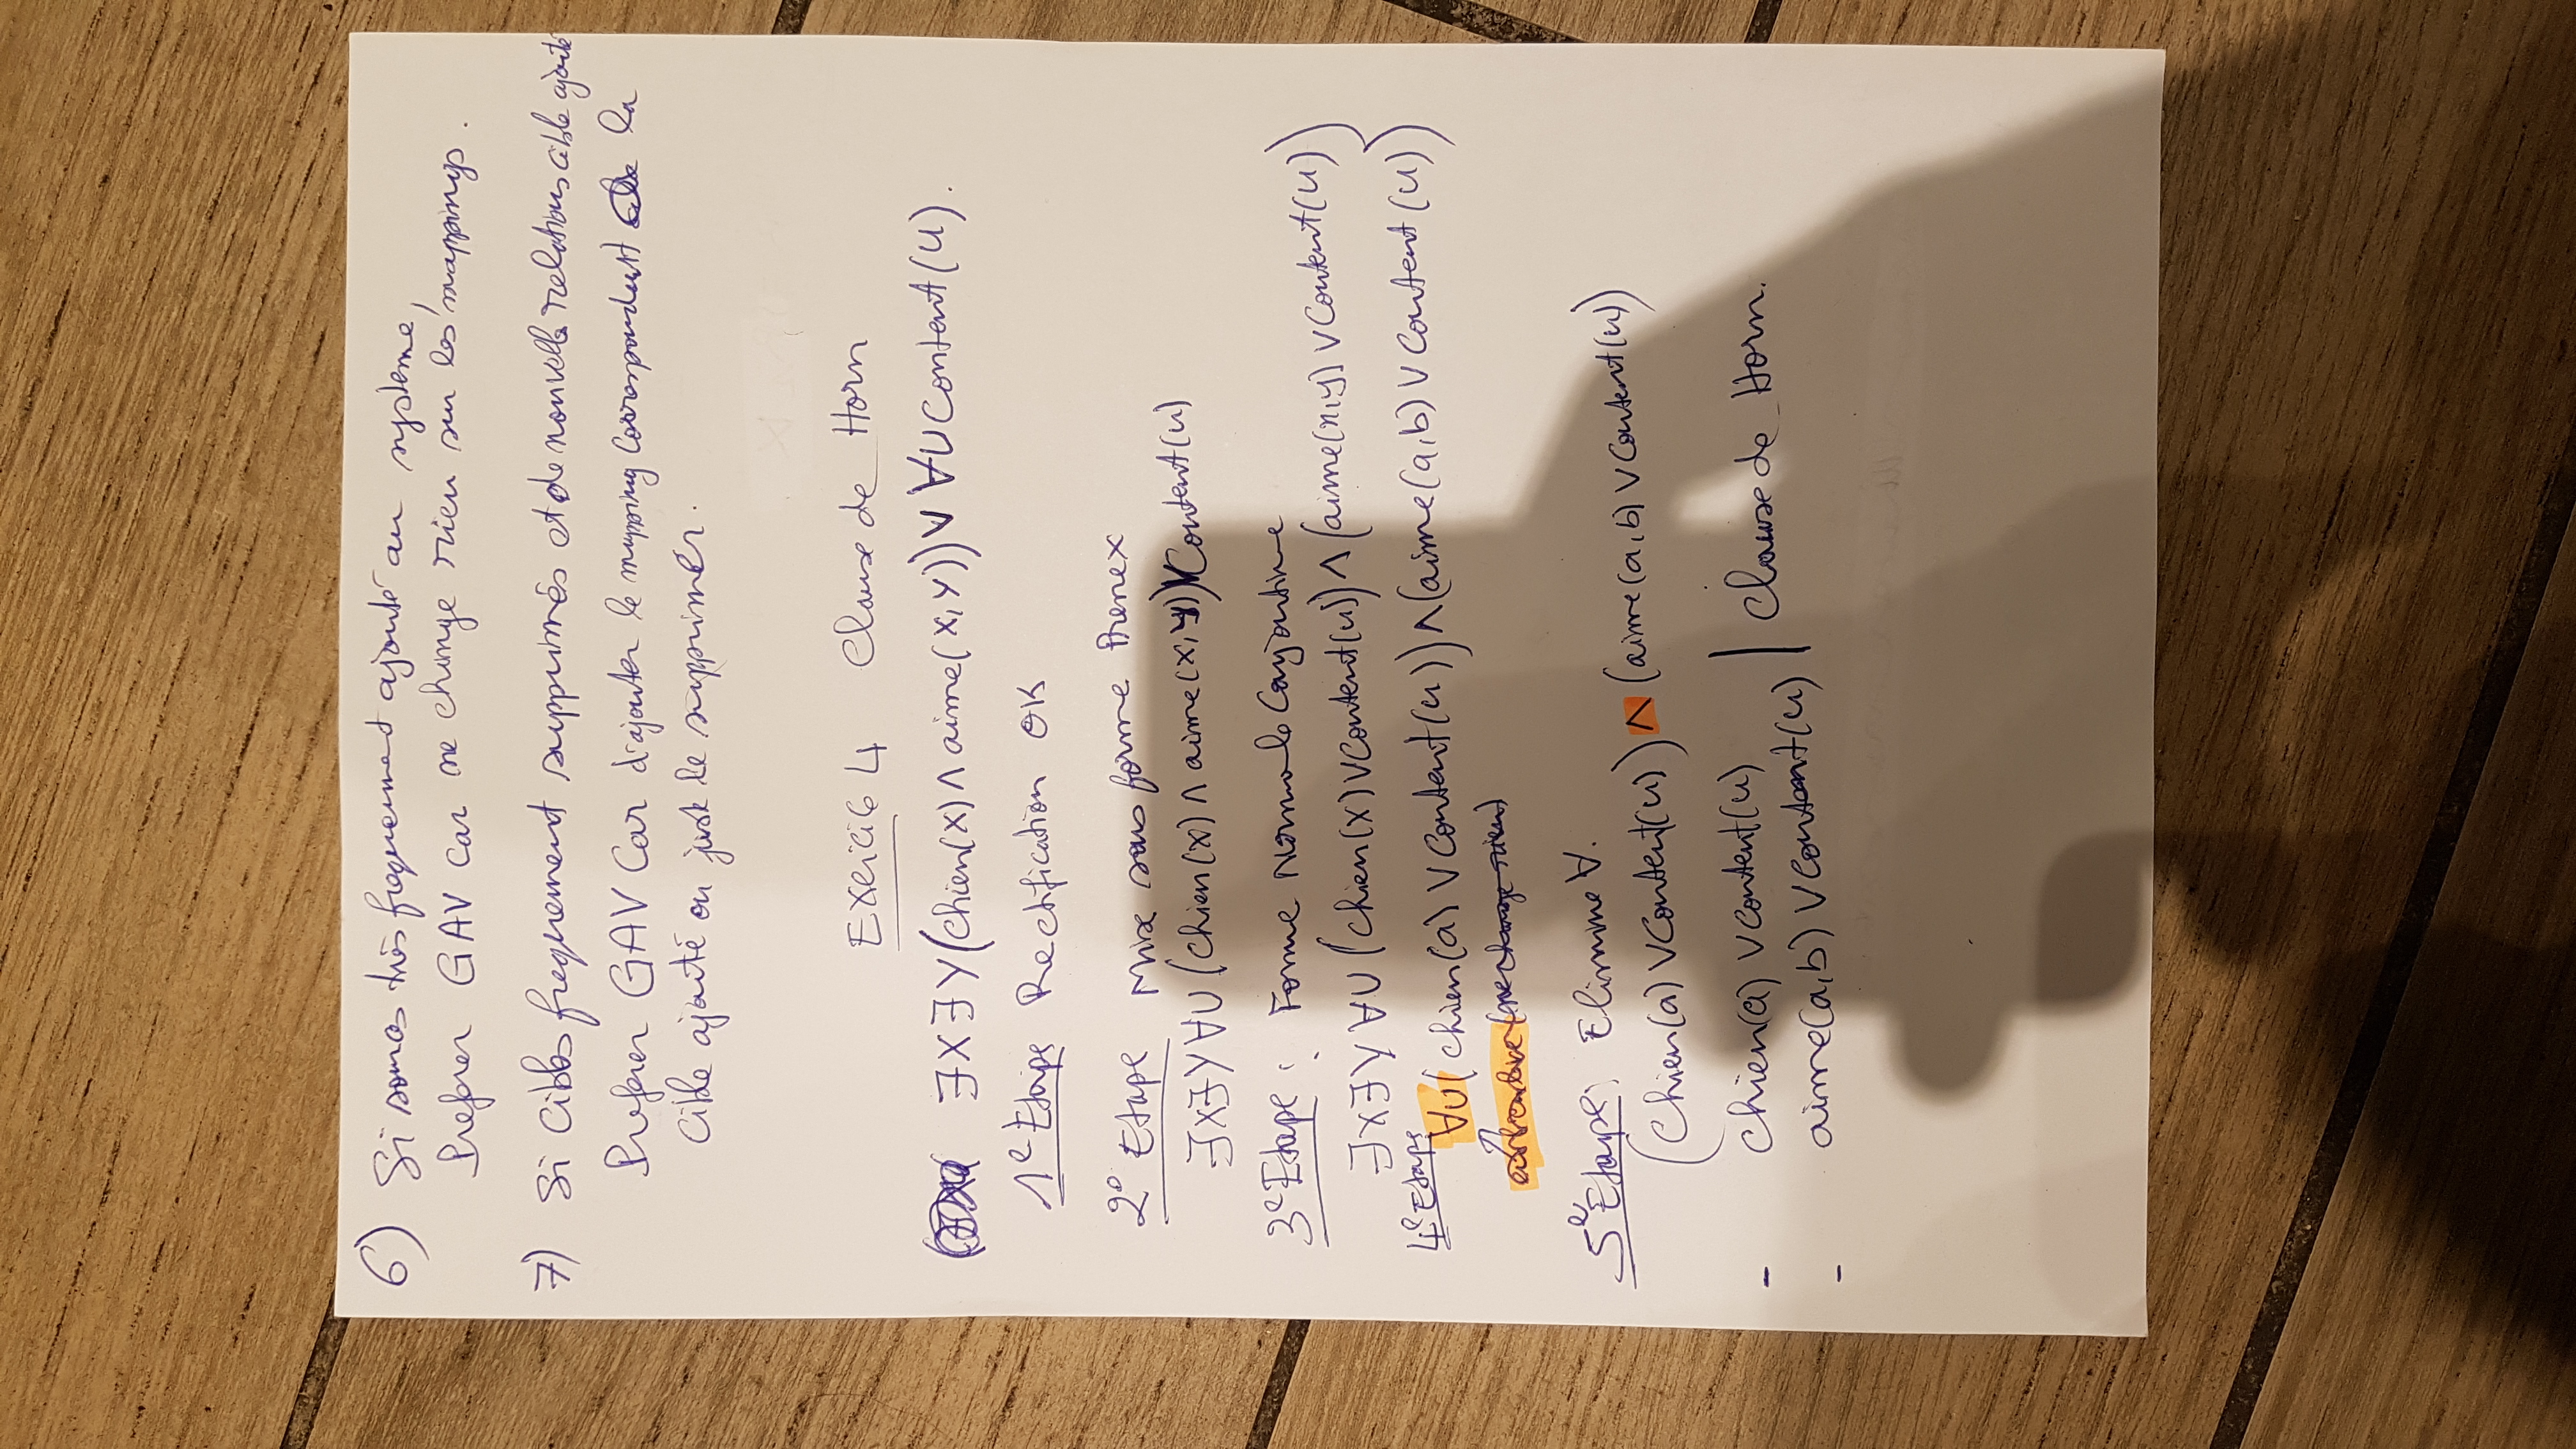 6) Si sources très frequemment ajouté au système,
Preferer GAV Car ne change rien sur les mappings.
7) Si Cibles frequement supprimés et de nouvelle relations cible ajouté
Preferer GAV Car d'ajouter le mapping Correspondant la
Cible ajouté ou just le supprimer.
Exercice 4 Clause de Horn
∃X∃Y(chien(X) ∧ aime(X,Y)) ∨ ∀U Content(U).
1e Etape Rectification OK
2e Etape Mise sous forme Prenex
∃X∃Y∀U (Chien(x) ∧ aime(x,y)) ∨ Content(u)
3e Etape : Forme Normale Conjontive
∃X∃Y ∀U (Chien(X) ∨ Content(u)) ∧ (aime(x,y) ∨ Content(U))
4e Etape
∀U( chien(a) ∨ Content(u)) ∧ (aime(a,b) ∨ Content(U))
(ne change rien)
5e Etape: Elimine ∀.
(Chien(a) ∨ Content(u)) ∧ (aime(a,b) ∨ Content(u))
- Chien(a) ∨ Content(u)
- aime(a,b) ∨ Content(u) | Clause de Horn.